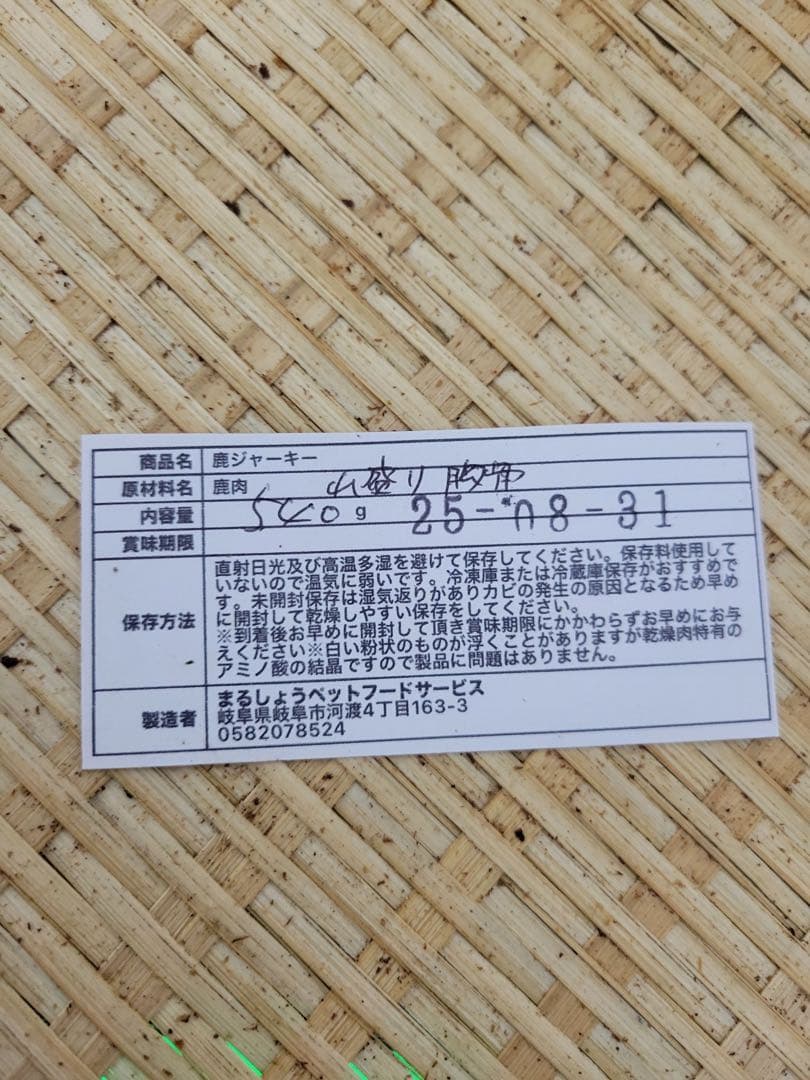 商品名 鹿ジャーキー
原材料名 鹿肉 山盛り
内容量 540g 25-08-31
賞味期限
保存方法 直射日光及び高温多湿を避けて保存してください。保存料使用して
いないので温気に弱いです。冷凍庫または冷蔵庫保存がおすすめで
す。未開封保存は湿気返りがありカビの発生の原因となるため早め
に開封して乾燥しやすい保存をしてください。
※到着後お早めに開封して頂き賞味期限にかかわらずお早めにお与
えください※白い粉状のものが浮くことがありますが乾燥肉特有の
アミノ酸の結晶ですので製品に問題はありません。
製造者 まるしょうペットフードサービス
岐阜県岐阜市河渡4丁目163-3
0582078524